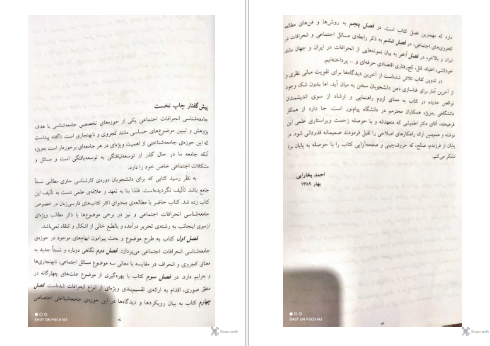 پیش‌گفتار چاپ نخست
جامعه‌شناسی انحرافات اجتماعی یکی از حوزه‌های تخصصی جامعه‌شناسی با هدف
پژوهش و تبیین موضوع‌های حساسی مانند کجروی و نابهنجاری است. ناگفته پیداست
که این حوزه‌ی جامعه‌شناختی از اهمیت ویژه‌ای در هر جامعه‌ای برخوردار است به‌ویژه
آنکه جامعه ما در حال گذر از توسعه‌نیافتگی به توسعه‌یافتگی است و مسائل و
مشکلات اجتماعی خاص خود را دارد.
به نظر رسید کتابی که برای دانشجویان دوره‌ی کارشناسی حاوی مطالبی نسبتاً
جامع باشد تألیف نگردیده‌است. لذا بنا به تعهد و علاقه‌ی علمی دست به تألیف این
کتاب زده شد. کتاب حاضر با مطالعه‌ی محتوای اکثر کتاب‌های فارسی‌زبان در خصوص
جامعه‌شناسی انحرافات اجتماعی و نیز در برخی موضوع‌ها با ذکر مطالب ویژه‌ای
ازسوی اینجانب به رشته‌ی تحریر درآمده و بالطبع خالی از اشکال و انتقاد نمی‌باشد.
فصل اول کتاب به طرح موضوع و بحث پیرامون ابهام‌های موجود در حوزه‌ی
جامعه‌شناسی انحرافات اجتماعی می‌پردازد. فصل دوم نگاهی دوباره و نسبتاً جدید به
معنای کجروی و انحراف در مقایسه با معانی سه موضوع مسائل اجتماعی، نابهنجاری‌ها
و جرایم دارد. در فصل سوم کتاب با بهره‌گیری از موضوع علت‌های چهارگانه در
منطق صوری، اقدام به ارائه‌ی تقسیم‌بندی ویژه‌ای از انواع انحرافات شده‌است. فصل
چهارم کتاب به بیان رویکردها و دیدگاه‌ها در این حوزه‌ی جامعه‌شناختی اختصاص
دارد که مهمترین فصل کتاب است. در فصل پنجم به روش‌ها و فن‌های مطالعه
کجروی‌های اجتماعی، در فصل ششم به ذکر رابطه‌ی مسائل اجتماعی و انحرافات در
ایران و بالاخره در فصل آخر به بیان نمونه‌هایی از انحرافات در ایران و جهان مانند
خودکشی، اعتیاد، قتل، کج‌رفتاری اقتصادی حرفه‌ای و ... پرداخته‌ایم.
در تدوین کتاب تلاش شده‌است از آخرین دیدگاه‌ها برای تقویت مبانی نظری و
از آخرین آمار برای غنا‌سازی ذهن دانشجویان سخن به میان آید. اما بدون شک وجود
نواقص عدیده در کتاب به معنای لزوم راهنمایی و ارشاد از سوی اندیشمندان
دانشگاهی به‌ویژه همکاران محترمم در دانشگاه پیام‌نور است. جا دارد از همکار
نوشته و همچنین ارائه راهکارهای اصلاحی را قبول فرمودند صمیمانه قدردانی شود. در
پایان از فرزندم، صالح، که حروف‌چینی و صفحه‌آرایی کتاب را با حوصله به پایان برد
تشکر می‌کنم.
احمد بخارایی
بهار ۱۳۸۹